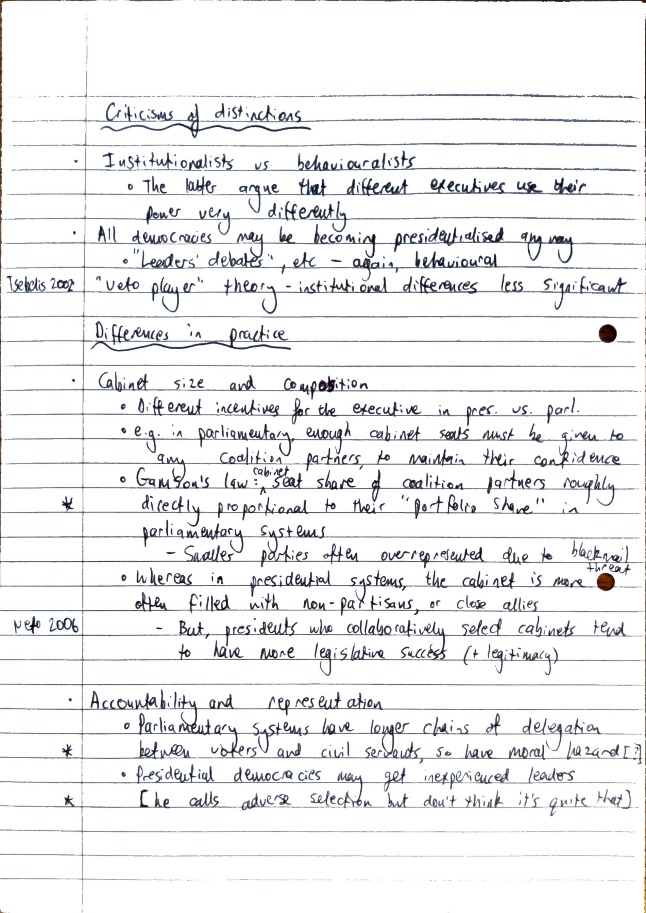 Criticisms of distinctions
· Institutionalists vs behaviouralists
o The latter argue that different executives use their
power very differently
· All democracies may be becoming presidentialised anyway
o "Leaders' debates", etc - again, behavioural
Tsebelis 2002 "veto player" theory - institutional differences less significant
Differences in practice
· Cabinet size and composition
o Different incentives for the executive in pres. vs. parl.
o e.g. in parliamentary, enough cabinet seats must be given to
any coalition partners, to maintain their confidence
o Gamson's law: cabinet seat share of coalition partners roughly
* directly proportional to their "portfolio share" in
parliamentary systems
- Smaller parties often overrepresented due to blackmail threat
o Whereas in presidential systems, the cabinet is more
often filled with non-partisans, or close allies
Neto 2006 - But, presidents who collaboratively select cabinets tend
to have more legislative success (+ legitimacy)
· Accountability and representation
o Parliamentary systems have longer chains of delegation
* between voters and civil servants, so have moral hazard [?]
o Presidential democracies may get inexperienced leaders
* [he calls adverse selection but don't think it's quite that]